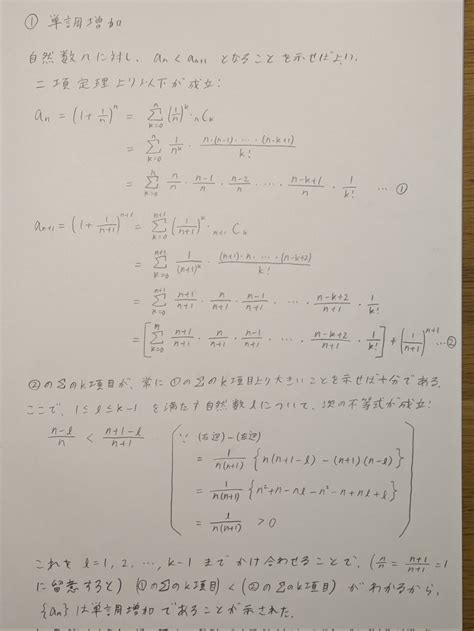 ① 単調増加
自然数nに対し、an < an+1 となることを示せばよい。
二項定理より以下が成立:
an = (1 + 1/n)^n = Σ[k=0→n] (1/n)^k · nCk
= Σ[k=0→n] 1/n^k · n·(n-1)· … ·(n-k+1)/k!
= Σ[k=0→n] n/n · (n-1)/n · (n-2)/n · … · (n-k+1)/n · 1/k! … ①
an+1 = (1 + 1/(n+1))^(n+1) = Σ[k=0→n+1] (1/(n+1))^k · n+1Ck
= Σ[k=0→n+1] 1/(n+1)^k · (n+1)·n· … ·(n-k+2)/k!
= Σ[k=0→n+1] (n+1)/(n+1) · n/(n+1) · (n-1)/(n+1) · … · (n-k+2)/(n+1) · 1/k!
= [Σ[k=0→n] (n+1)/(n+1) · n/(n+1) · (n-1)/(n+1) · … · (n-k+2)/(n+1) · 1/k!] + (1/(n+1))^(n+1) … ②
②のΣのk項目が、常に①のΣのk項目より大きいことを示せば十分である。
ここで、1≦l≦k-1 を満たす自然数lについて、次の不等式が成立:
(n-l)/n < (n+1-l)/(n+1)
(∵ (右辺)-(左辺)
= 1/(n(n+1)) {n(n+1-l) - (n+1)(n-l)}
= 1/(n(n+1)) {n²+n-nl-n²-n+nl+l}
= l/(n(n+1)) > 0)
これを l=1, 2, …, k-1 までかけ合わせることで、(n/n = (n+1)/(n+1) = 1
に留意すると) (①のΣのk項目) < (②のΣのk項目) がわかるから、
{an} は単調増加であることが示された。